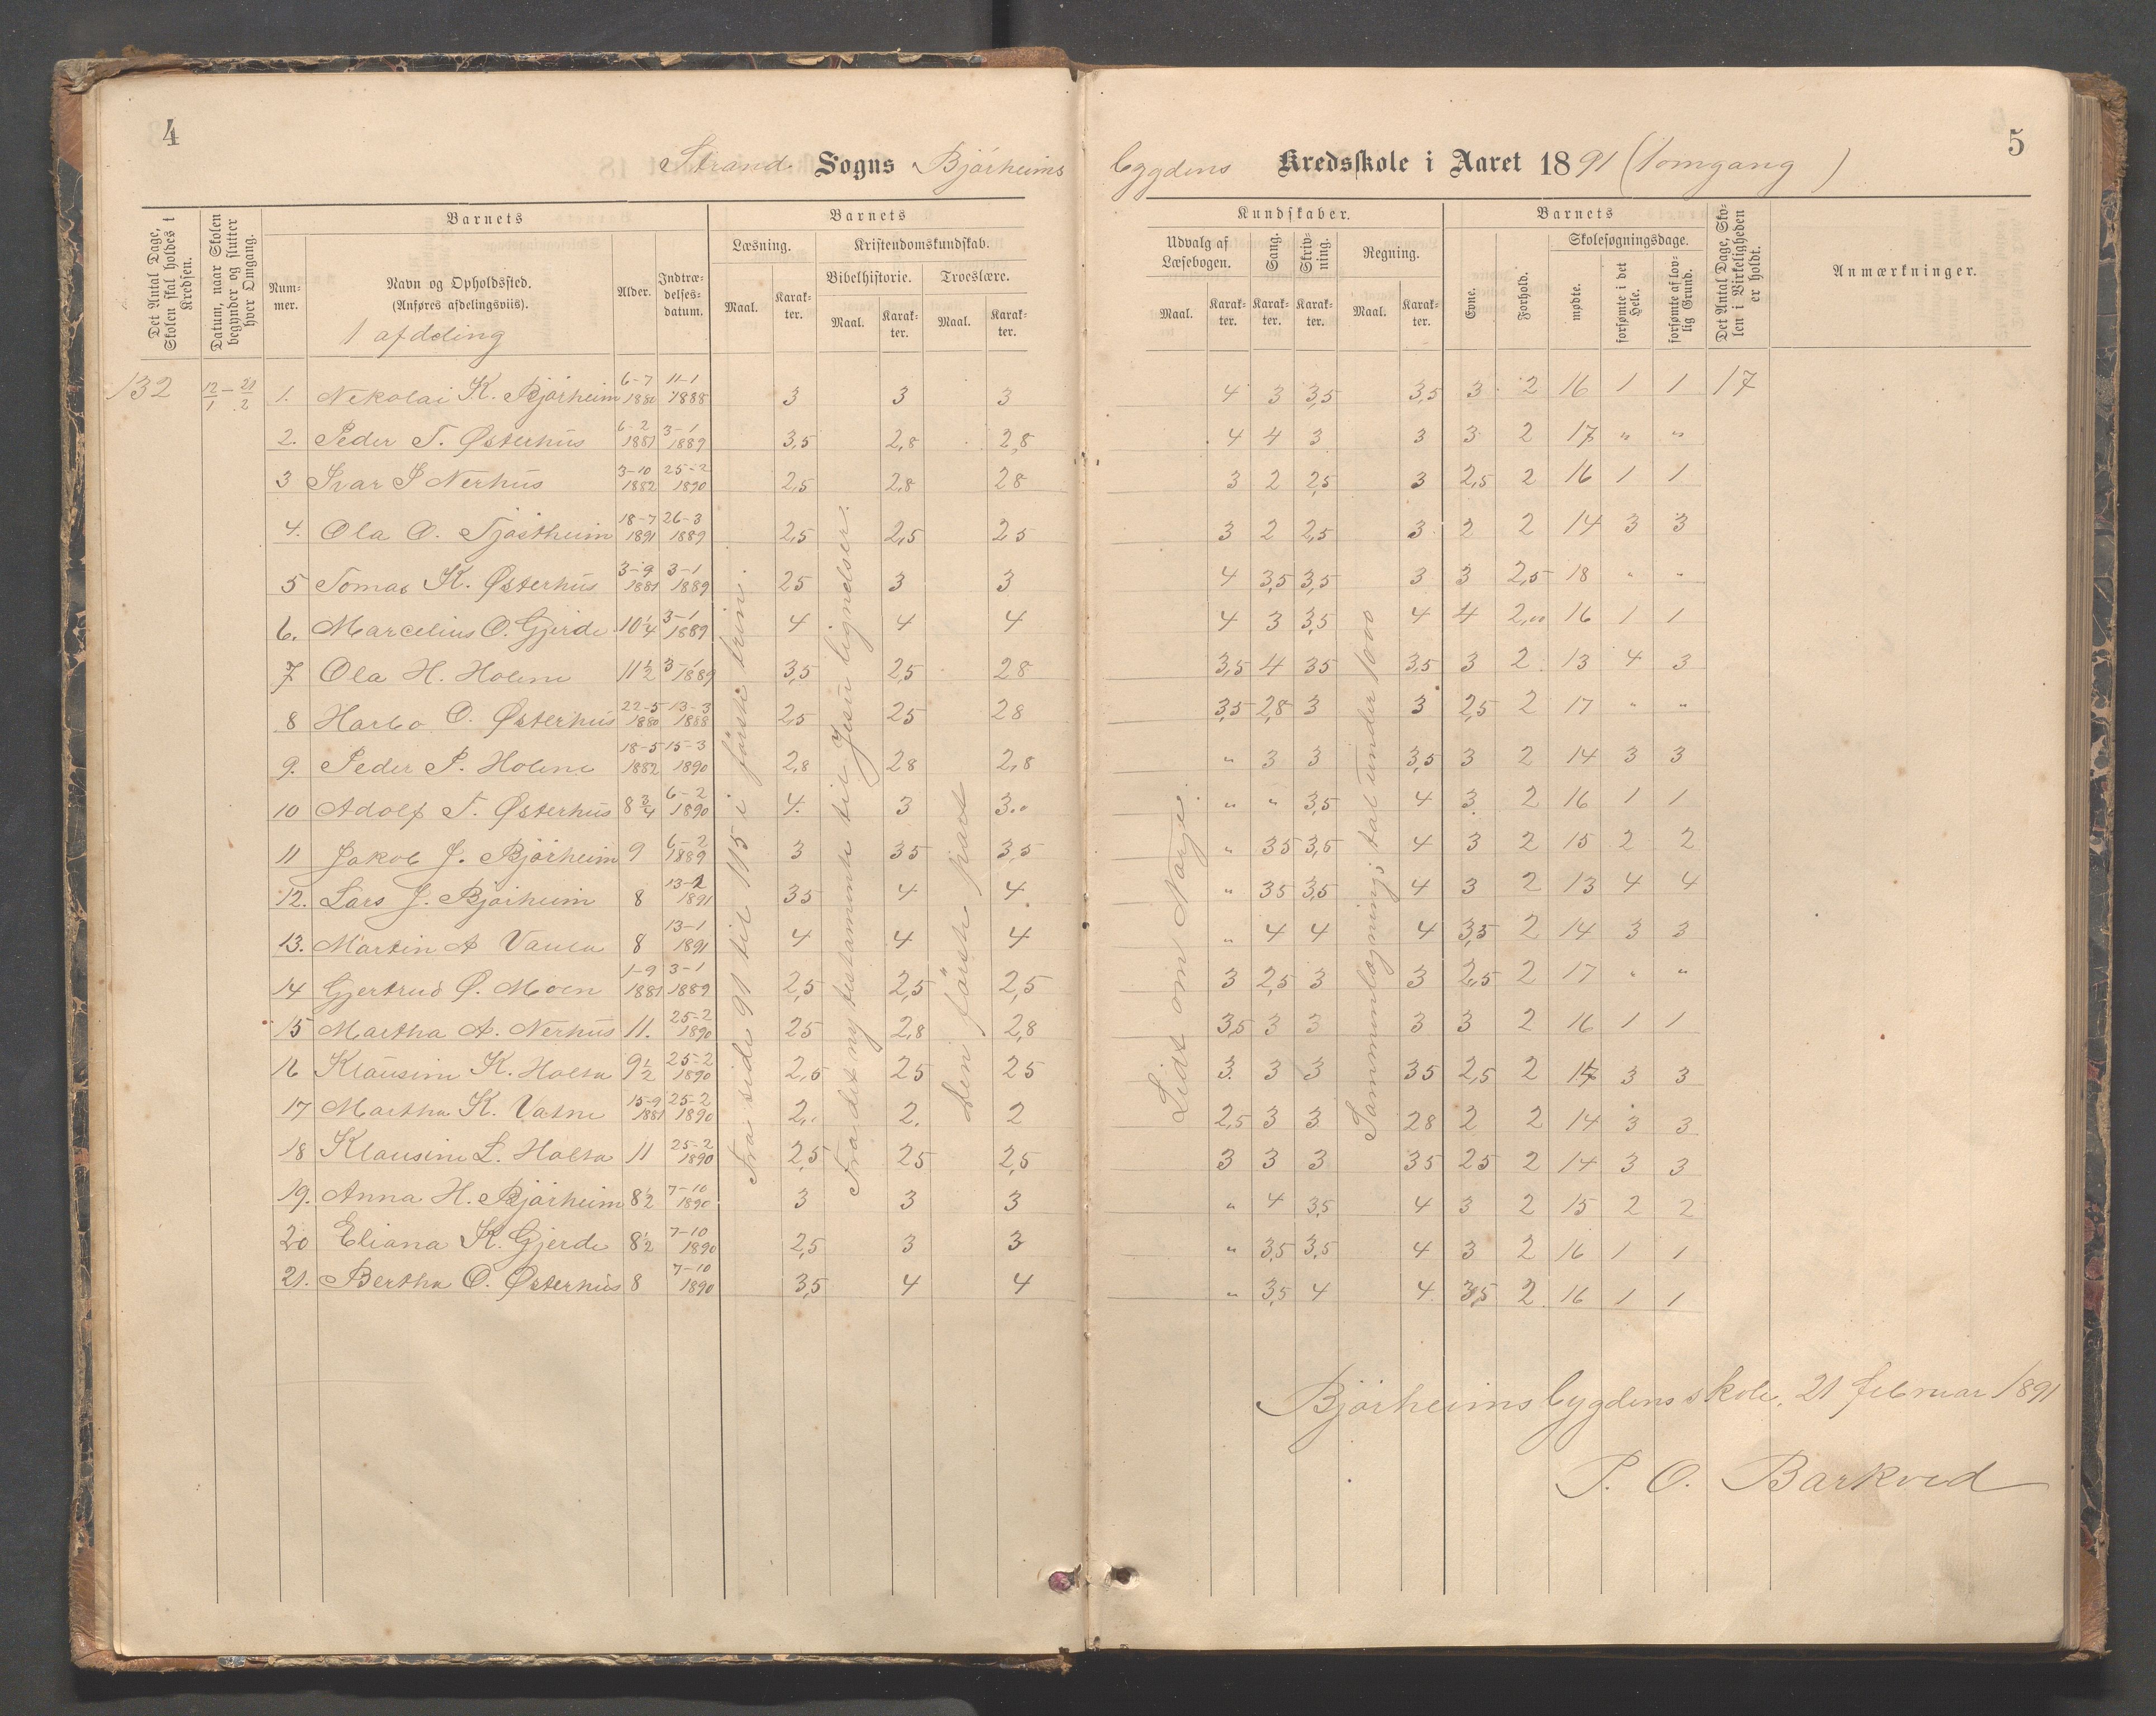 4
Strand Sogns Bjørheims
Det Antal Dage, Skolen skal holdes i Kredsen.
Datum, naar Skolen begynder og slutter hver Omgang.
Barnets
Barnets
Nummer.
Navn og Opholdssted.
(Anføres afdelingsviis).
1 afdeling
Alder.
Indtrædelsesdatum.
Læsning.
Kristendomskundskab.
Bibelhistorie.
Troeslære.
Maal. Karakter. Maal. Karakter. Maal. Karakter.
132 12/1 – 21/2 1. Nekolai K. Bjørheim 6-7 1880 11-1 1888 3 3 3
2. Peder T. Østerhus 6-2 1881 3-1 1889 3,5 2,8 2,8
3 Ivar I Nerhus 3-10 1882 25-2 1890 2,5 2,8 28
4. Ola O. Tjøstheim 18-7 1891 26-3 1889 2,5 2,5 25
5 Tomas K. Østerhus 3-9 1881 3-1 1889 25 3 3
6. Marcelius O. Gjerde 10 1/4 3-1 1889 4 4 4
7 Ola H. Holene 11 1/2 3-1 1889 3,5 25 28
8 Harbo O. Østerhus 22-5 1880 13-3 1888 2,5 25 28
9. Peder P. Holene 18-5 1882 15-3 1890 2,8 28 2,8
10 Adolf T. Østerhus 8 3/4 6-2 1890 4. 3 3
11 Jakob J. Bjørheim 9 6-2 1889 3 35 3,5
12. Lars J. Bjørheim 8 13-1 1891 35 4 4
13. Martin A 8 13-1 1891 4 4 4
14 Gjertrud Ø. Moen 1-9 1881 3-1 1889 2,5 2,5 2,5
15 Martha A. Nerhus 11. 25-2 1890 25 2,8 2,8
16 Klausine K. Holta 9 1/2 25-2 1890 2,5 25 25
17 Martha K. Vatne 15-9 1881 25-2 1890 2. 2. 2
18 Klausine L. Holta 11 25-2 1890 2,5 25 2,5
19. Anna H. Bjørheim 8 1/2 7-10 1890 3 3 3
20 Eliana K. Gjerde 8 1/2 7-10 1890 2,5 3 3
21. Bertha O. Østerhus 8 7-10 1890 3,5 4 4
Fra side 91 til 115 i første trin
Fra det ny testamente til Jesu lignelser.
Den første part
5
bygdens Kredsskole i Aaret 1891 (1 omgang )
Kundskaber.
Barnets
Det Antal Dage, Skolen i Virkeligheden er holdt.
Anmærkninger.
Udvalg af Læsebogen.
Sang.
Skrivning.
Regning.
Evne.
Forhold.
Skolesøgningsdage.
mødte.
forsømte i det Hele.
forsømte af lovlig Grund.
Maal. Karakter. Karakter. Karakter. Maal. Karakter.
4 3 3,5 3,5 3 2 16 1 1 17
4 4 3 3 3 2 17 " "
3 2 2,5 3 2,5 2 16 1 1
3 2 2,5 3 2 2 14 3 3
4 3,5 3,5 3 3 2,5 18 " "
4 3 3,5 4 4 2," 16 1 1
3,5 4 35 3,5 3 2 13 4 3
3,5 2,8 3 3 2,5 2 17 " "
" 3 3 3,5 3 2 14 3 3
" " 3,5 4 3 2 16 1 1
" 35 3,5 4 3 2 15 2 2
" 35 3,5 4 3 2 13 4 4
" 4 4 4 3,5 2 14 3 3
3 2,5 3 3 2,5 2 17 " "
3,5 3 3 3 3 2 16 1 1
3. 3 3 35 2,5 2 14 3 3
2,5 3 3 28 2 2 14 3 3
3 3 3 35 25 2 14 3 3
" 4 3,5 4 3 2 15 2 2
" 3,5 3,5 4 3 2 16 1 1
" 3,5 4 4 3,5 2 16 1 1
Lidt om Norge
Sammenlægning; tal under 1000
Bjørheimsbygdens skole, 21 februar 1891
P. O. Barkved